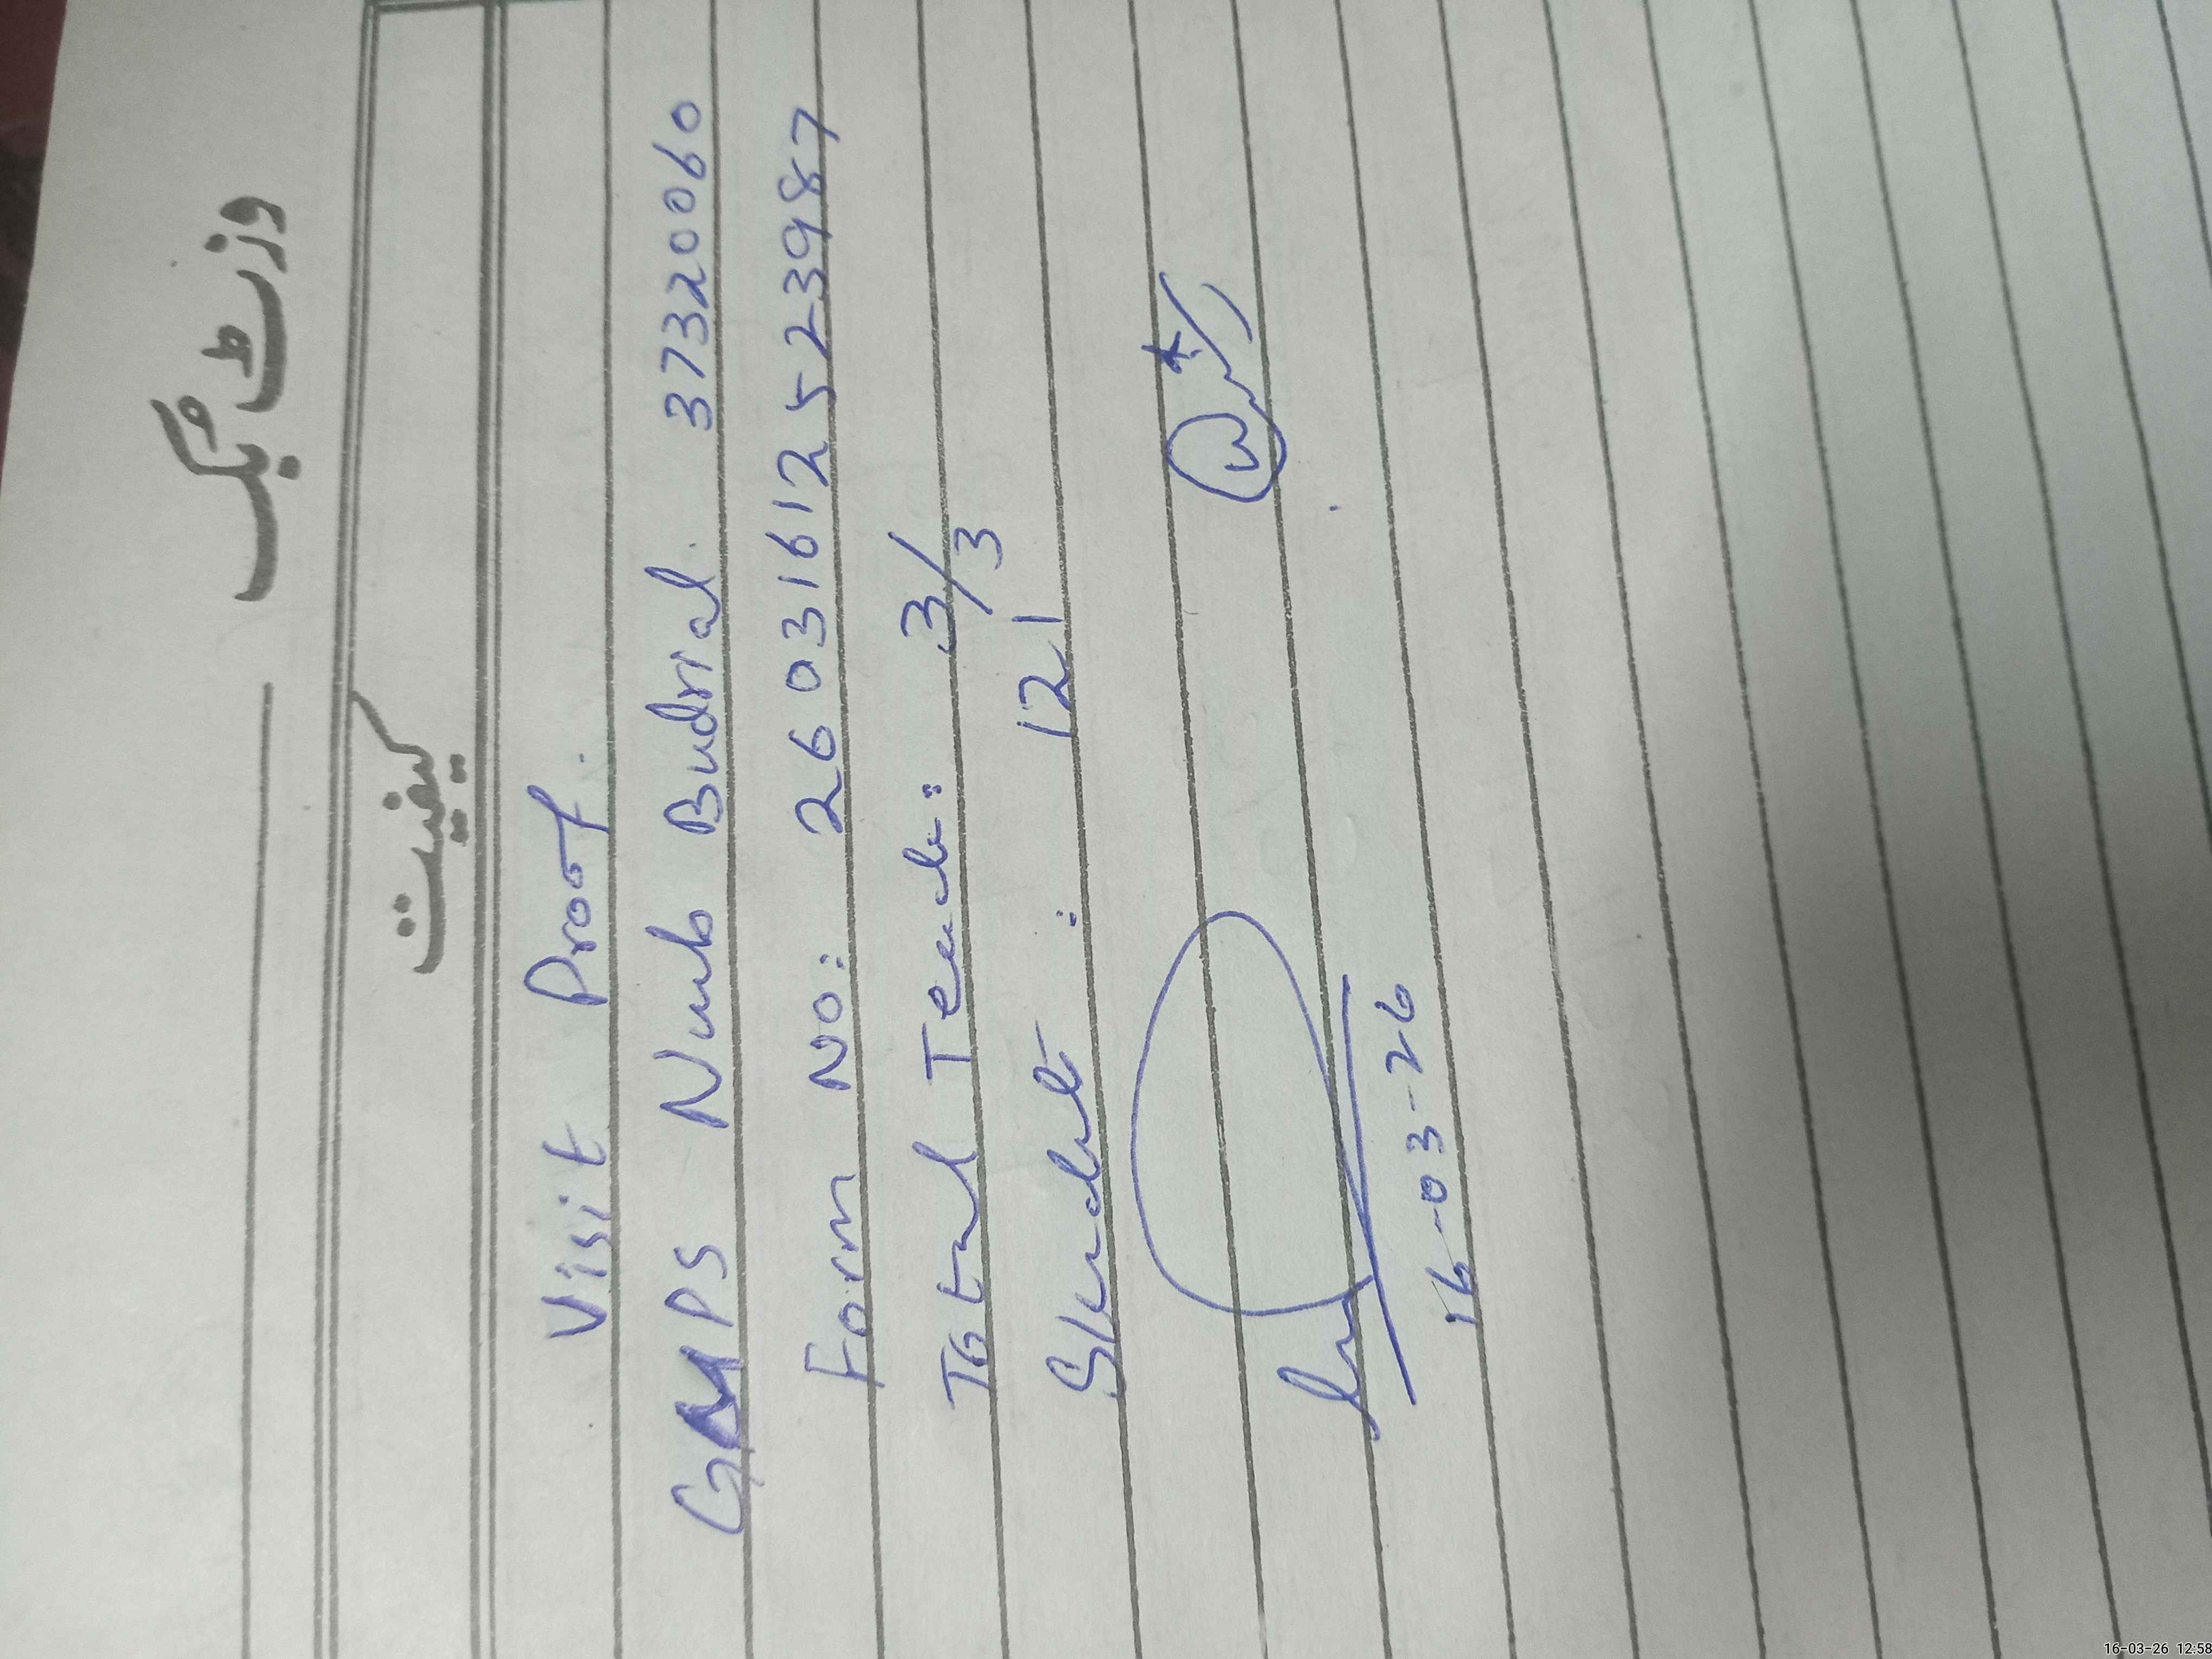 وزٹ بک
کیفیت
Visit Proof.
GMPS Numb Budrial. 37320060
Form No: 26031612523987
Total Teach: 3/3
Student : 121
16-03-26
16-03-26 12:58